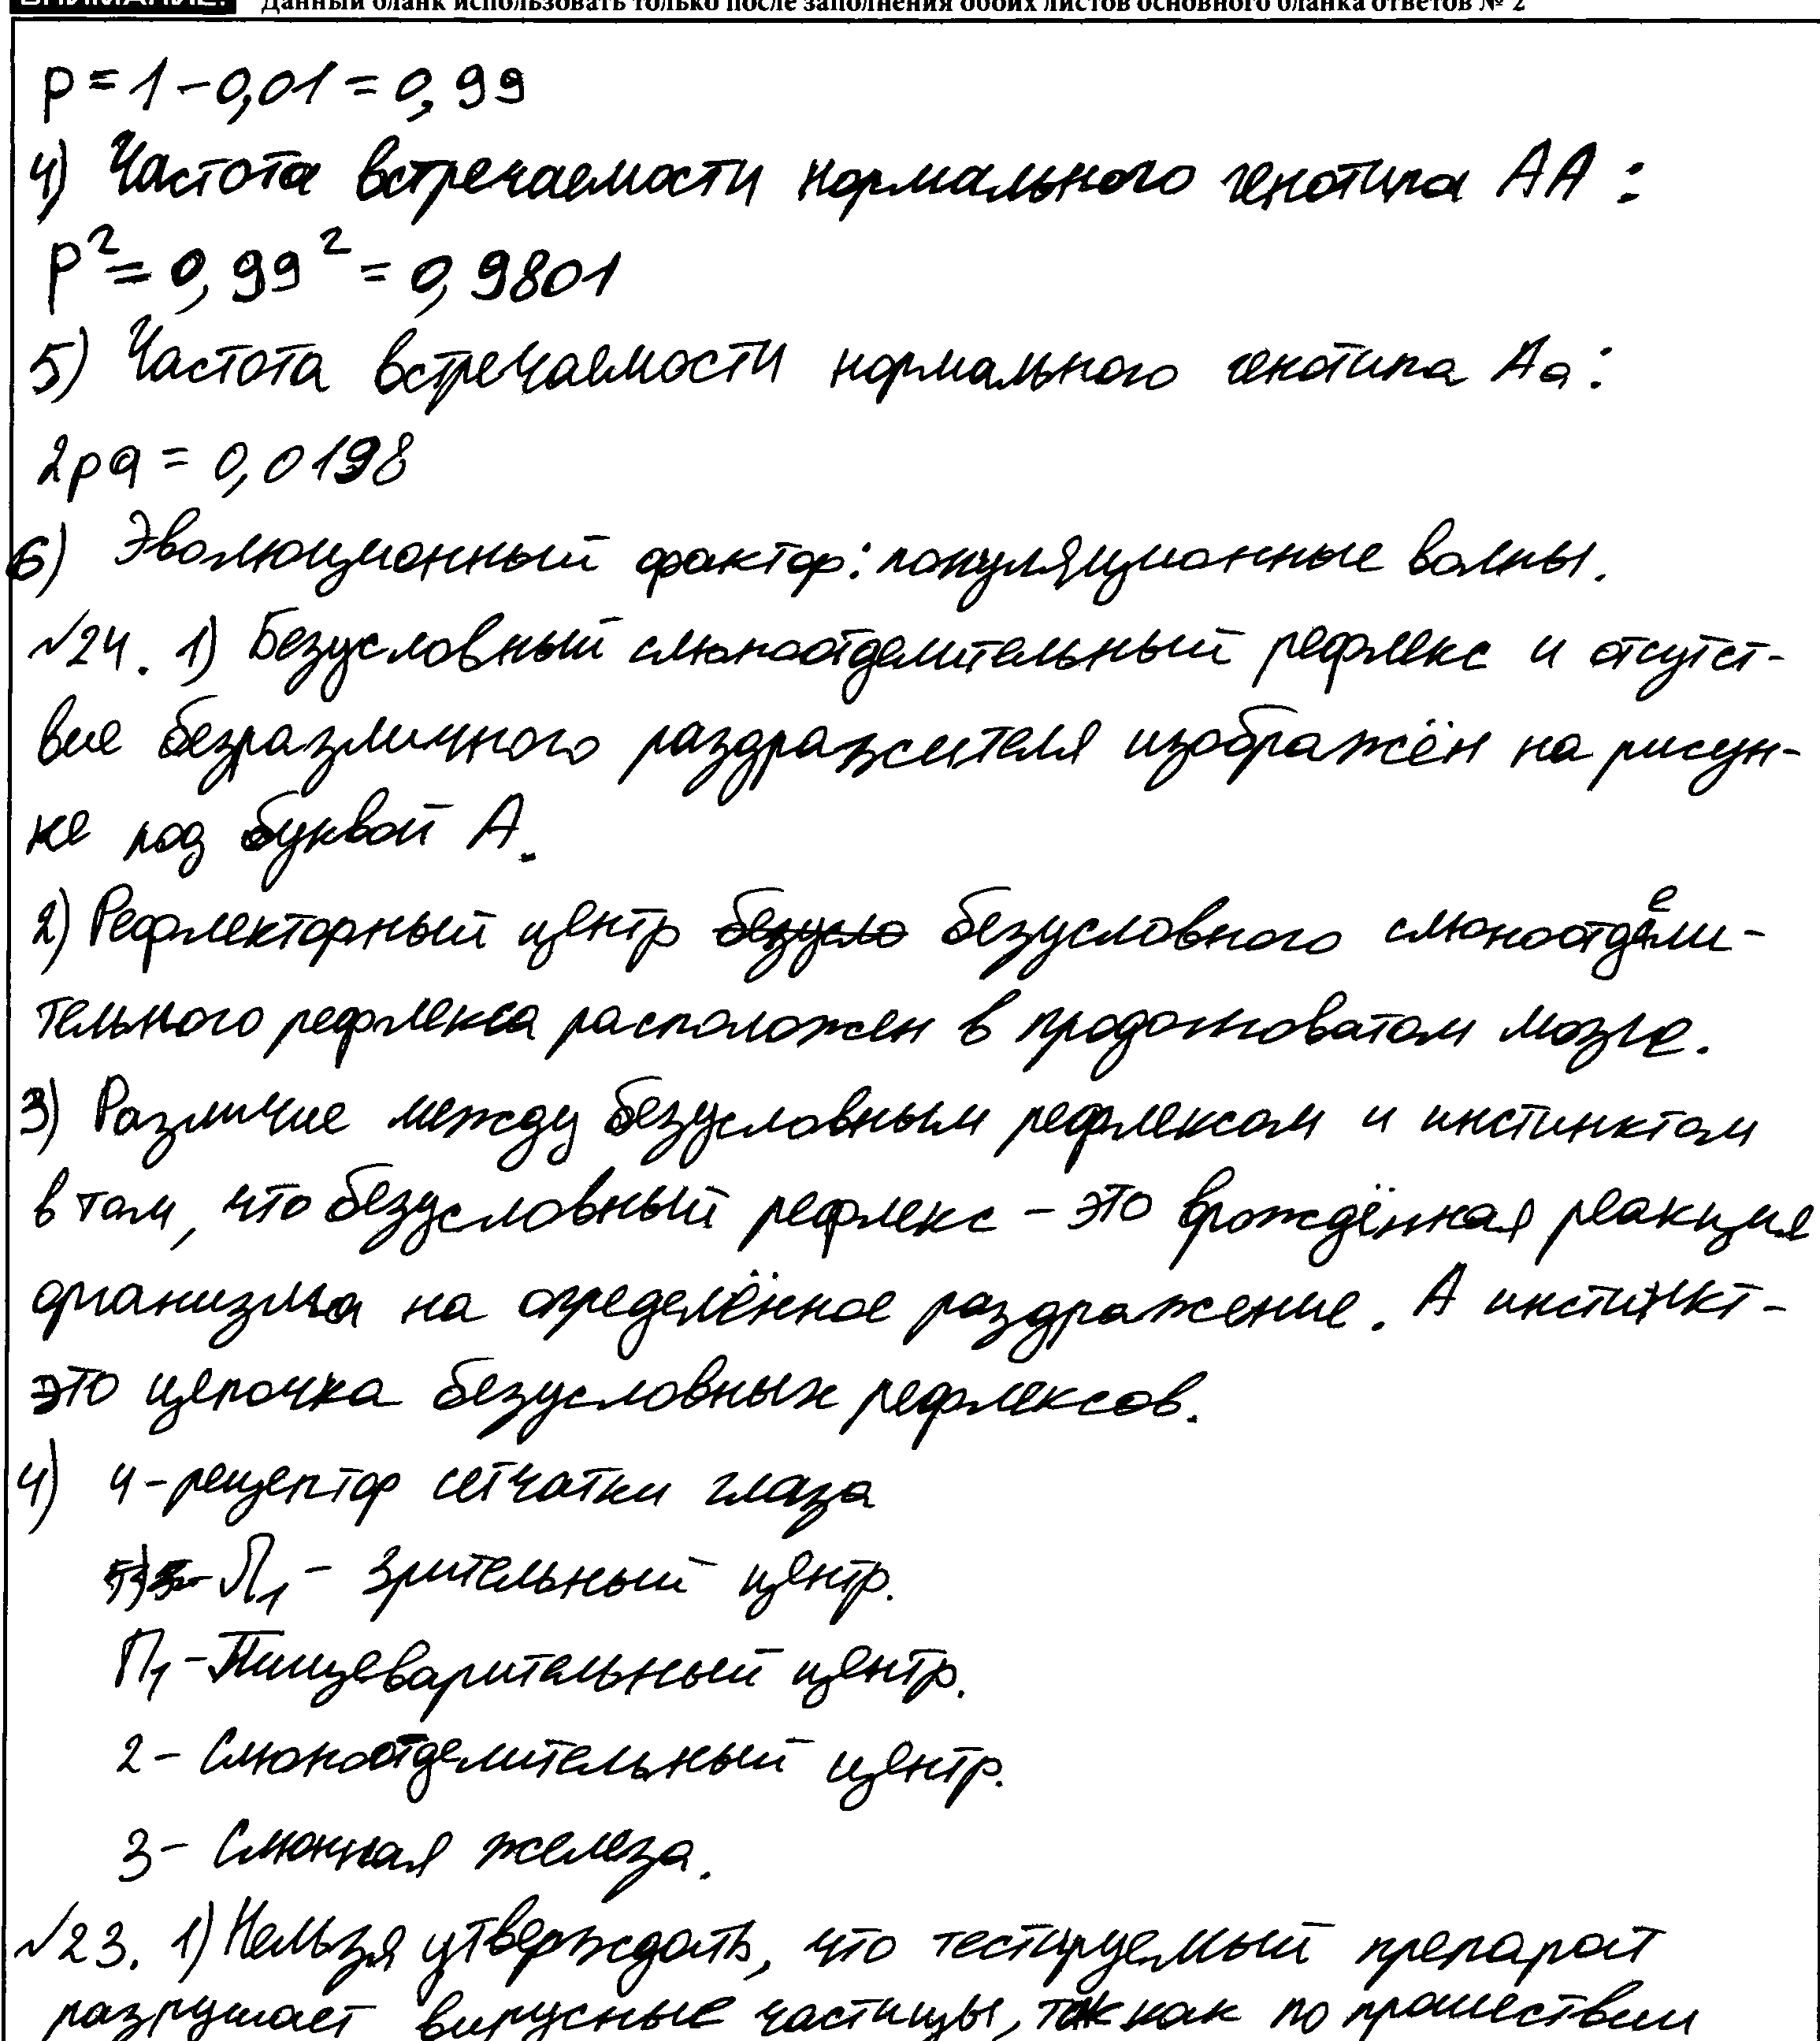 ВНИМАНИЕ! Данный бланк использовать только после заполнения обоих листов основного бланка ответов № 2
p = 1 – 0,01 = 0,99
4) Частота встречаемости нормального генотипа АА :
p² = 0,99² = 0,9801
5) Частота встречаемости нормального генотипа Аа :
2pq = 0,0198
6) Эволюционный фактор: популяционные волны.
№24. 1) Безусловный слюноотделительный рефлекс и отсутст-
вие безразличного раздражителя изображён на рисун-
ке под буквой А.
2) Рефлекторный центр безусло безусловного слюноотдели-
тельного рефлекса расположен в продолговатом мозге.
3) Различие между безусловным рефлексом и инстинктом
в том, что безусловный рефлекс – это врождённая реакция
организма на определённое раздражение. А инстинкт –
это цепочка безусловных рефлексов.
4) 4 – рецептор сетчатки глаза
Л₁ – зрительный центр.
П₁ – Пищеварительный центр.
2 – Слюноотделительный центр.
3 – Слюнная железа.
№23. 1) Нельзя утверждать, что тестируемый препарат
разрушает вирусные частицы, так как по прошествии